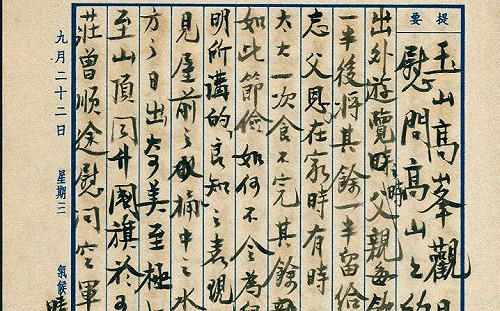 提要
玉山高峯觀日
慰問高山之的
出外遊覽時父親每飲
一半後將其餘一半留給
父恩在家時有時
太太一次食不完其餘部
如此節儉如何不令為
明所講的良知之表現
見屋前之水桶中之水
方之日出奇美至極
至山頂同升國旗於
莊曾順途慰問空軍
九月二十二日 星期三 氣候 晴